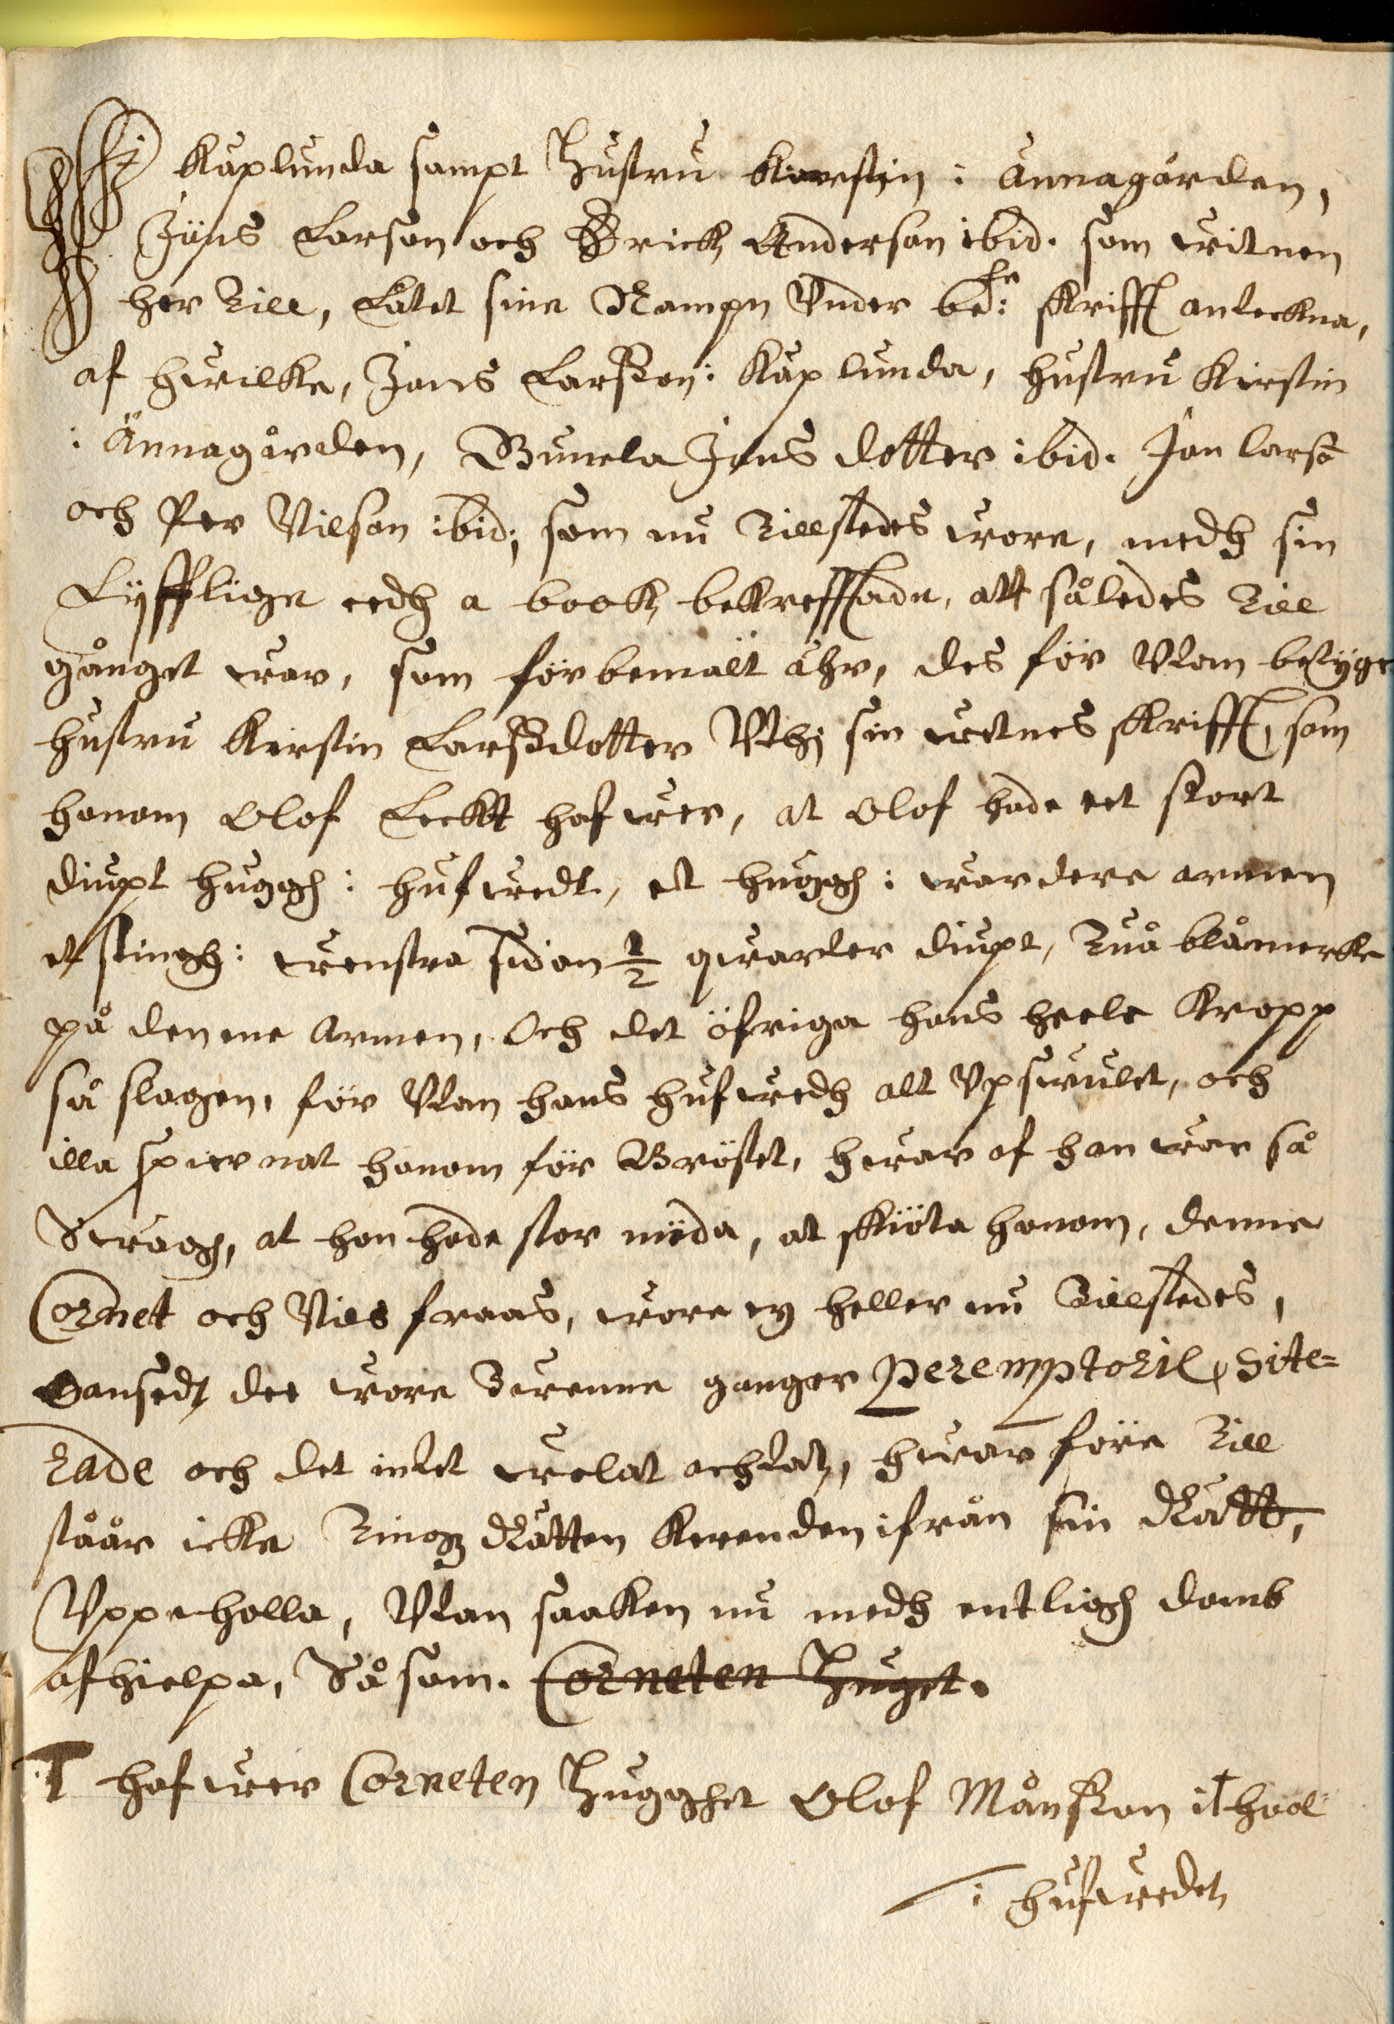 Kaplunda sampt Hustru Kierstin i Ännagården,
Jöns Larson och Erick Anderson ibid. som witnen
her till, låtet sine Nampn Vnder be:te skrifft anteckna,
af hwilka, Jons Larsson i Kaplunda, hustru Kirstin
i Ännagården, Gunela Jons dotter ibid. Jon Lars
och Per Nilson ibid; som nu tillstedes wore, medh sin
Lÿfflige eedh a book bekrefftade, att således till
gånget war, som förbemält ähr, des för Vtan betÿger
hustru Kirstin Larssdotter Vthi sin witnes skrifft, som
honom Olof Leckt hafwer, at Olof hade eet stort
diupt huggh i hufwedt, et huggh i wardere armen
et stingh i wenstra sidan 1/2 qwarter diupt, tuå blåmerke
på den ene armen, Och det öfriga hans heele Kropp
så slagen, för Vtan hans hufwedh alt Vpswulet, och
illa spiernat honom för Bröstet, hwar af han war så
Swagh, at hon hade stor möda, at skiöta honom, denne
Cornet och Nils fraas, wore eÿ heller nu tillstedes,
Oansedt dee wore twenne ganger peremptorie, Site=
rade och det intet welat achtat, hwar före till
står icke tingz Rätten kerenden ifrån sin Rätt,
Vppeholla, Vtan saaken nu medh entligh domb
afhielpa, Så som. Corneten Huget.
hafwer Corneten Hugghet Olof Månsson it hool
i hufwedet